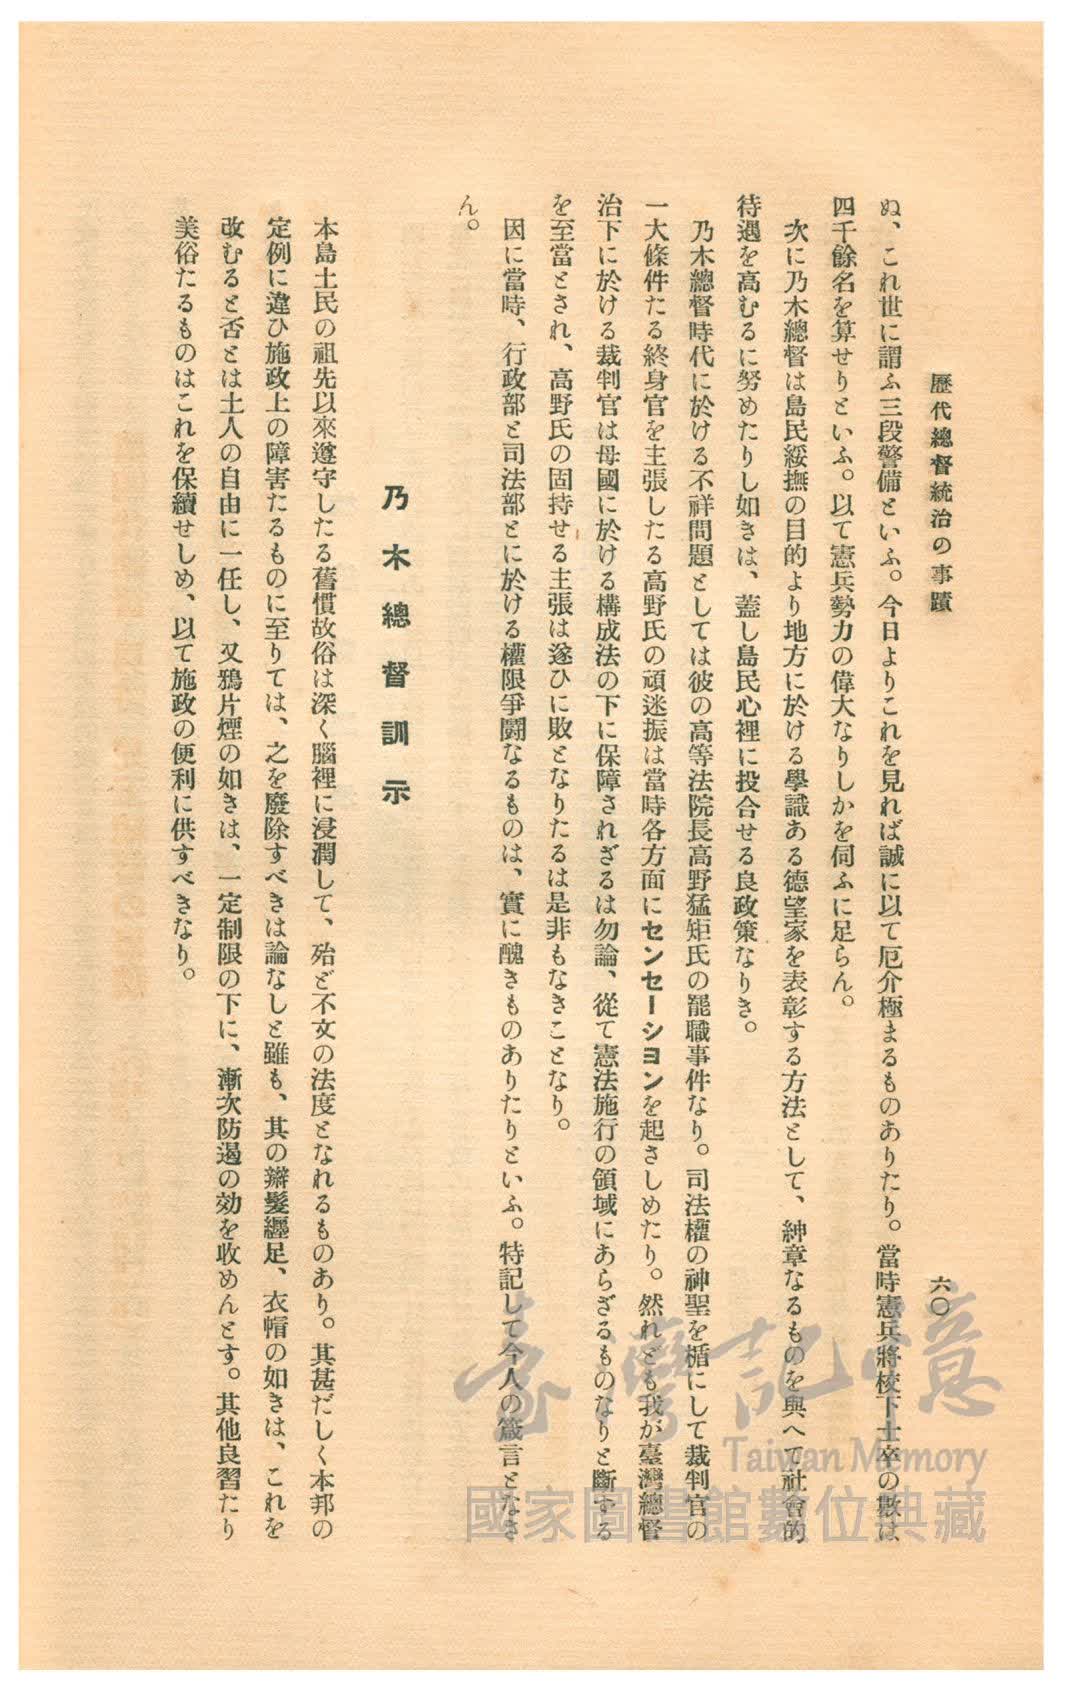 歷代總督統治の事蹟
六〇
ぬ、これ世に謂ふ三段警備といふ。今日よりこれを見れば誠に以て厄介極まるものありたり。當時憲兵將校下士卒の數は
四千餘名を算せりといふ。以て憲兵勢力の偉大なりしかを伺ふに足らん。
次に乃木總督は島民綏撫の目的より地方に於ける學識ある德望家を表彰する方法として、紳章なるものを與へて社會的
待遇を高むるに努めたりし如きは、蓋し島民心裡に投合せる良政策なりき。
乃木總督時代に於ける不祥問題としては彼の高等法院長高野猛矩氏の罷職事件なり。司法權の神聖を楯にして裁判官の
一大條件たる終身官を主張したる高野氏の頑迷振は當時各方面にセンセーシヨンを起さしめたり。然れども我が臺灣總督
治下に於ける裁判官は母國に於ける構成法の下に保障されざるは勿論、從て憲法施行の領域にあらざるものなりと斷する
を至當とされ、高野氏の固持せる主張は遂ひに敗となりたるは是非もなきことなり。
因に當時、行政部と司法部とに於ける權限爭鬪なるものは、實に醜きものありたりといふ。特記して今人の箴言となさ
ん。
乃木總督訓示
本島土民の祖先以來遵守したる舊慣故俗は深く腦裡に浸潤して、殆ど不文の法度となれるものあり。其甚だしく本邦の
定例に違ひ施政上の障害たるものに至りては、之を廢除すべきは論なしと雖も、其の辮髮纒足、衣帽の如きは、これを
改むると否とは土人の自由に一任し、又鴉片煙の如きは、一定制限の下に、漸次防遏の効を收めんとす。其他良習たり
美俗たるものはこれを保續せしめ、以て施政の便利に供すべきなり。
臺灣記憶
Taiwan Memory
國家圖書館數位典藏